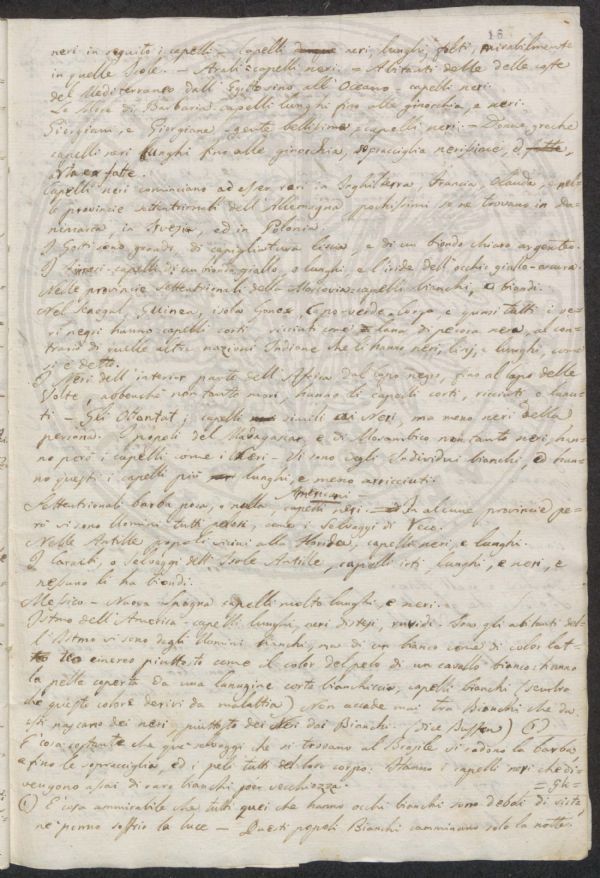 16
neri in seguito i capelli - Capelli neri, lunghi, folti, mirabilmente
in quelle Isole. - Arabi = capelli neri. - Abitanti delle delle coste
del Mediterraneo dall' Egitto sino all' Oceano - capelli neri.
Le More di Barbaria capelli lunghi fino alle ginocchia, e neri.
Giorgiani, e Giorgiane - gente bellissima, e capelli neri. - Donne greche
capelli neri lunghi fino alle ginocchia, sopracciglia nerissime, ed
Capelli neri cominciano ad esser rari in Inghilterra, Francia, Olanda, e nel-
le provincie settentrionali dell' Allemagna, pochissimi se ne trovano in Da-
nimarca, in Svezia, ed in Polonia.
I Goti sono grandi, di capigliatura liscia, e di un biondo chiaro argenteo.
I capelli di un biondo giallo, o lunghi, e l'iride dell' occhio giallo-oscura.
Nelle provincie settentrionali della Moscovia capelli bianchi, e biondi.
Nel Senegal, Guinea, isola Gorea, Capoverde, Congo, e quasi tutti i ve-
ri negri hanno capelli corti ricciati come lana di pecora nera, al con-
trario di quelle altre nazioni Indiane che li hanno neri, lisci, e lunghi, come
si è detto.
I Neri dell' interior parte dell' Affrica dal capo negro, fino al capo delle
Volte, abbenchè non tanto mori, hanno li capelli corti, ricciuti, e lanu-
ti - Gli Ottentoti capelli simili ai Neri, ma meno neri della
persona. I popoli del Madagascar, e di Mozambico non tanto neri, han-
no però i capelli come i Neri - Vi sono degli Individui bianchi, ed han-
no questi i capelli più lunghi, e meno arricciati.
Americani -
Settentrionali barba poca, o nulla, capelli neri. - In alcune provincie pe-
rò vi sono Uomini tutti pelosi, come i selvaggi di
Nelle Antille popoli vicini alla Florida, capelli neri, e lunghi.
I Caraibi, o selvaggi dell' Isole Antille, capelli irti, lunghi, e neri, e
nessuno li ha biondi.
Messico - Nuova Spagna capelli molto lunghi, e neri.
Istmo dell' America - capelli lunghi, neri distesi, ruvidi. Sono gli abitanti del-
l' Istmo vi sono degli Uomini bianchi, ma di un bianco come di color lat-
teo cinereo piuttosto come il color del pelo di un cavallo bianco: hanno
la pelle coperta da una lanugine corta bianchiccia, capelli bianchi (sembra
che questo colore derivi da malattia) Non accade mai tra Bianchi che da
essi nascano dei neri, piuttosto dei Neri dai Bianchi. (dice Buffon) (1)
E' cosa costante che que' selvaggi che si trovano al Brasile si radono la barba
e fino le sopracciglia, ed i peli tutti del loro corpo: Hanno i capelli neri che di-
vengono assai di raro bianchi per vecchiezza. = Gli =
(1) E' cosa ammirabile che tutti quei che hanno occhi bianchi sono deboli di vista,
nè ponno soffrir la luce - Questi popoli Bianchi camminano solo la notte.